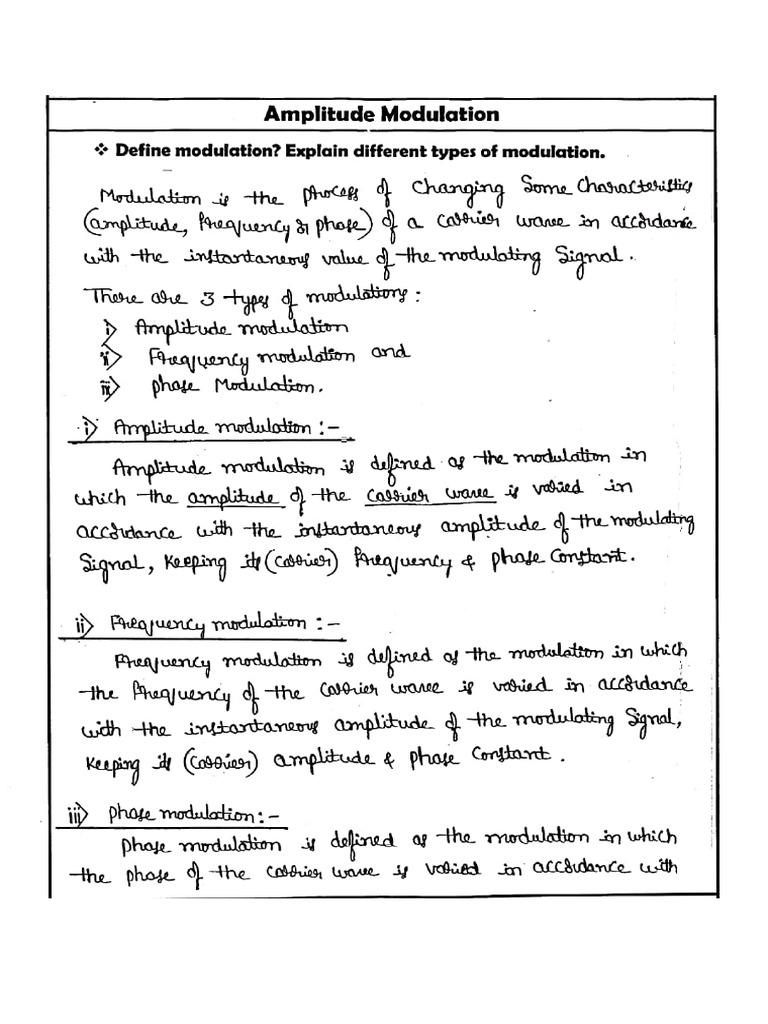 Amplitude Modulation
❖ Define modulation? Explain different types of modulation.
Modulation is the process of changing some characteristics
(amplitude, frequency or phase) of a carrier wave in accordance
with the instantaneous value of the modulating signal.
There are 3 types of modulations:
i) Amplitude modulation
ii) Frequency modulation and
iii) phase Modulation.
i) Amplitude modulation :-
Amplitude modulation is defined as the modulation in
which the amplitude of the carrier wave is varied in
accordance with the instantaneous amplitude of the modulating
signal, keeping its (carrier) frequency & phase constant.
ii) Frequency modulation :-
Frequency modulation is defined as the modulation in which
the frequency of the carrier wave is varied in accordance
with the instantaneous amplitude of the modulating signal,
keeping its (carrier) amplitude & phase constant.
iii) phase modulation :-
phase modulation is defined as the modulation in which
the phase of the carrier wave is varied in accordance with